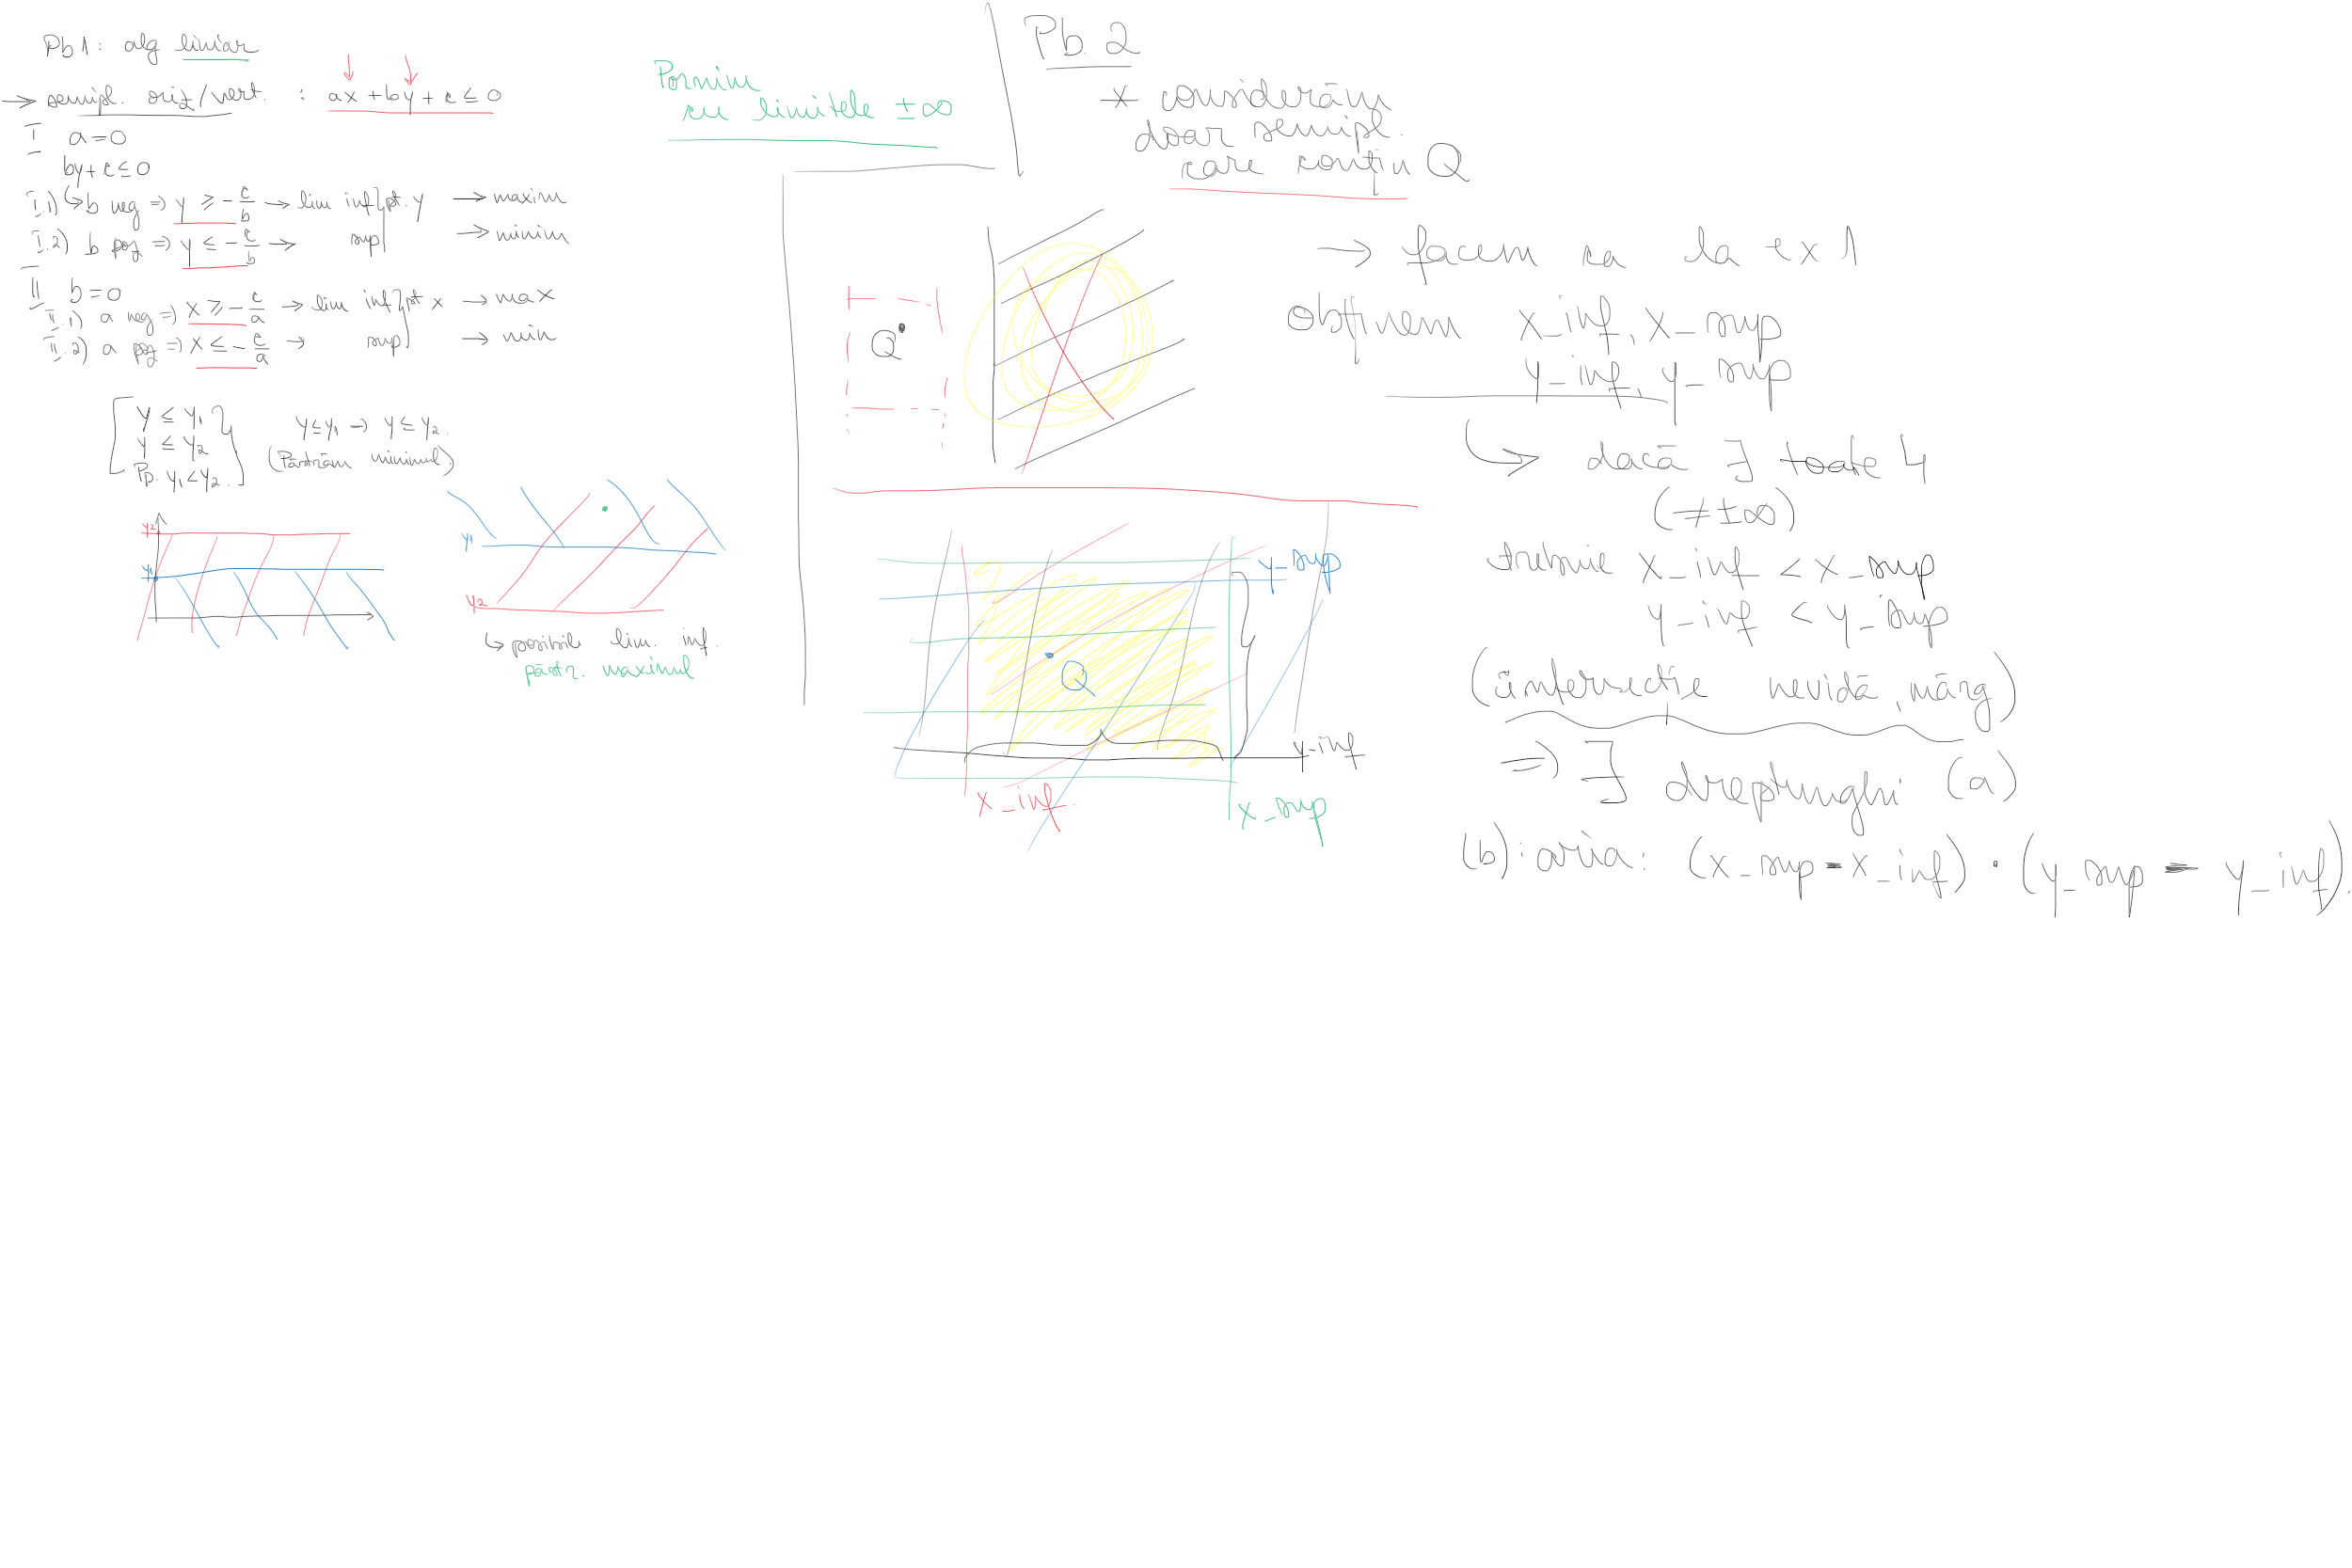 Pb 1: alg liniar
→ semipl. oriz/vert. : ax + by + c ≤ 0
I a = 0
by + c ≤ 0
I.1) ↳ b neg ⇒ y ≥ - c/b → lim inf pt. y → maxim
I.2) b poz ⇒ y ≤ - c/b → sup → minim
II b = 0
II.1) a neg ⇒ x ≥ - c/a → lim inf pt x → max
II.2) a poz ⇒ x ≤ - c/a → sup → min
Pornim
cu limitele ±∞
y ≤ y1
y ≤ y2
Pp. y1 < y2.
y ≤ y1 → y ≤ y2.
(Păstrăm minimul.)
y2
y1
y1
y2
↳ posibile lim. inf.
păstr. maximul
Pb. 2
* considerăm
doar semipl.
care conțin Q
Q
→ facem ca la ex 1
obținem x_inf, x_sup
y_inf, y_sup
↳ dacă ∃ toate 4
(≠ ±∞)
trebuie x_inf < x_sup
y_inf < y_sup
(intersecție nevidă, mărg)
⇒ ∃ dreptunghi (a)
(b): aria: (x_sup - x_inf) · (y_sup - y_inf).
y_sup
Q
y_inf
x_inf.
x_sup